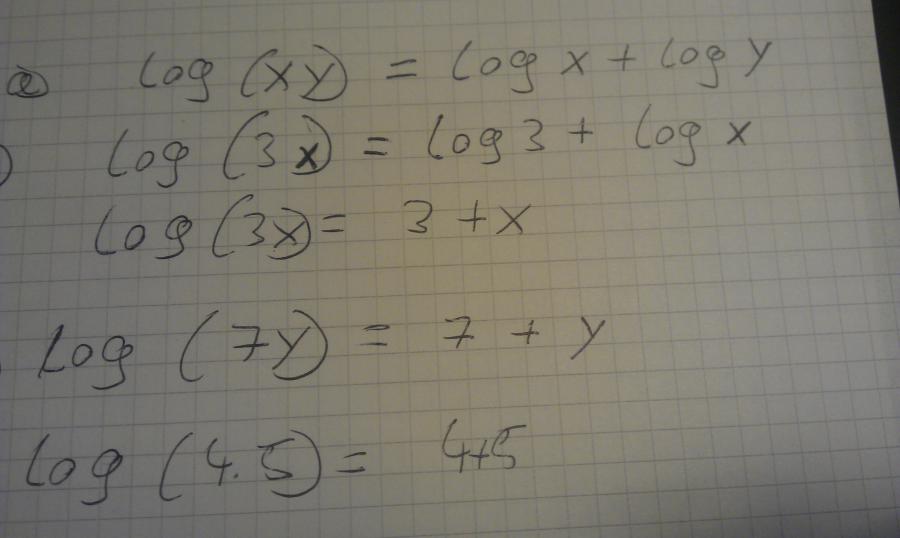 a) log (xy) = log x + log y
) log (3x) = log 3 + log x
log (3x) = 3 + x
log (7y) = 7 + y
log (4.5) = 4+5